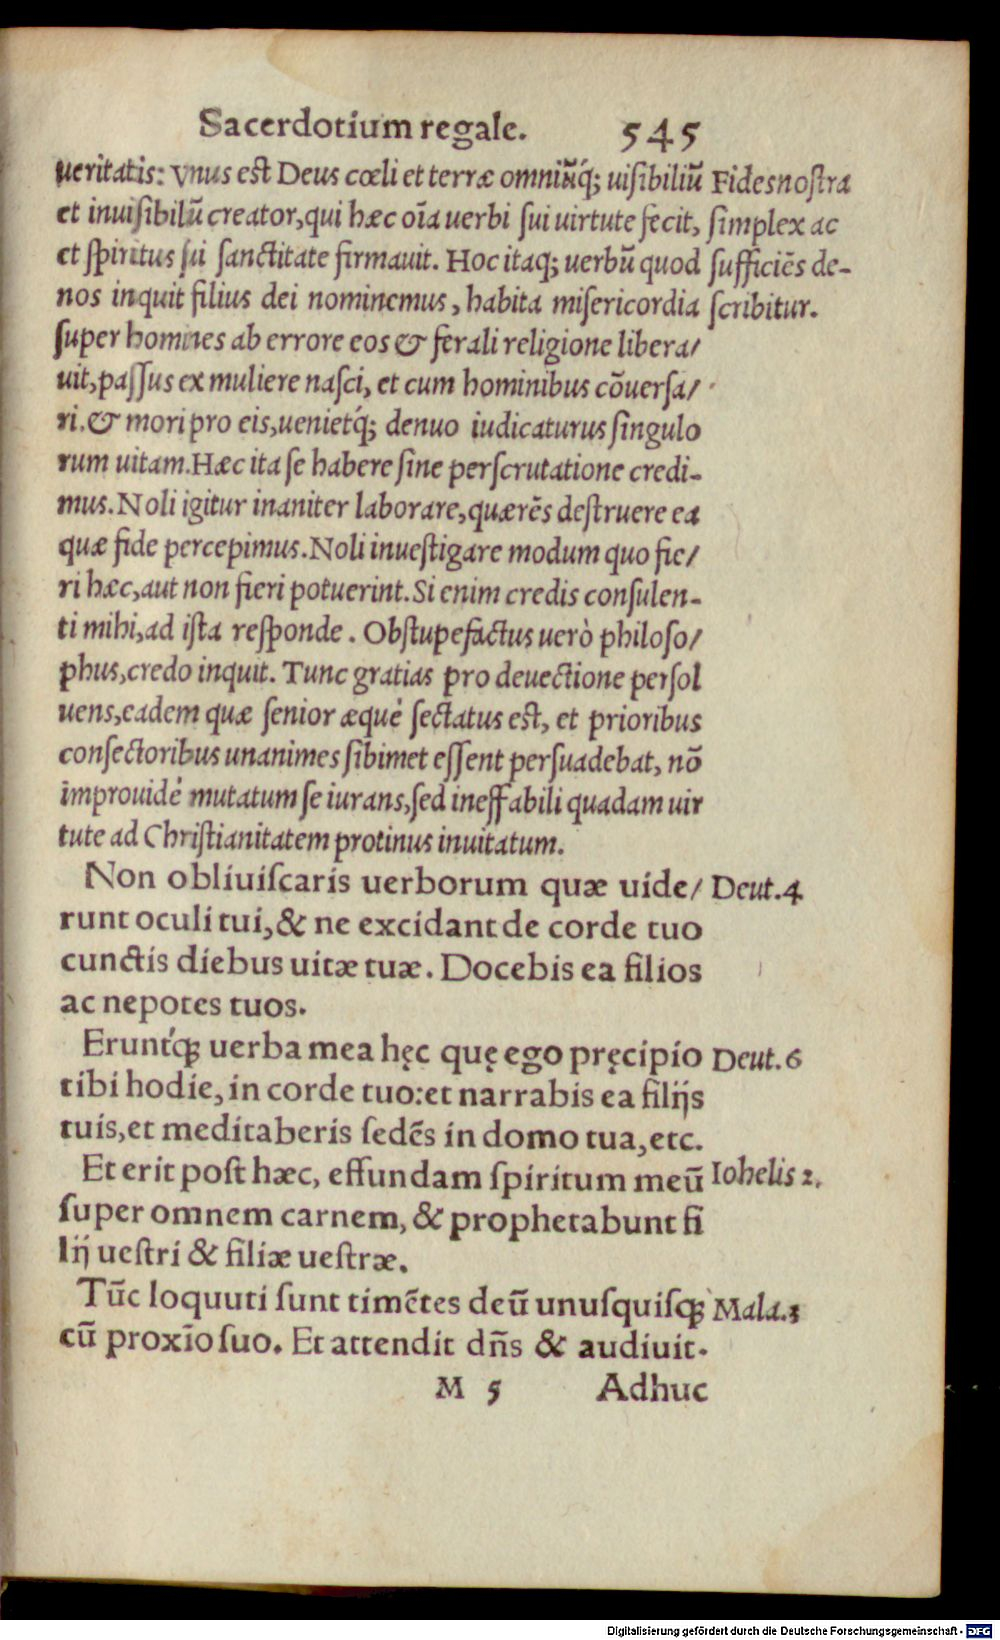 Sacerdotium regale. 545
ueritatis: Vnus est Deus cœli et terræ omniūq́; uisibiliū
et inuisibiliū creator, qui hæc oīa uerbi sui uirtute fecit,
et spiritus sui sanctitate firmauit. Hoc itaq; uerbū quod
nos inquit filius dei nominemus, habita misericordia
super homines ab errore eos & ferali religione libera/
uit, passus ex muliere nasci, et cum hominibus cōuersa/
ri, & mori pro eis, uenietq́; denuo iudicaturus singulo
rum uitam. Hæc ita se habere sine perscrutatione credi-
mus. Noli igitur inaniter laborare, quærēs destruere ea
quæ fide percepimus. Noli inuestigare modum quo fie/
ri hæc, aut non fieri potuerint. Si enim credis consulen-
ti mihi, ad ista responde. Obstupefactus uerò philoso/
phus, credo inquit. Tunc gratias pro deuectione persol
uens, eadem quæ senior æqué sectatus est, et prioribus
consectoribus unanimes sibimet essent persuadebat, nō
improuidé mutatum se iurans, sed ineffabili quadam uir
tute ad Christianitatem protinus inuitatum.
Fides nostra
simplex ac
sufficiēs de-
scribitur.
Non obliuiscaris uerborum quæ uide/
runt oculi tui, & ne excidant de corde tuo
cunctis diebus uitæ tuæ. Docebis ea filios
ac nepotes tuos.
Deut. 4
Eruntq́ꝫ uerba mea hęc quę ego pręcipio
tibi hodie, in corde tuo: et narrabis ea filijs
tuis, et meditaberis sedēs in domo tua, etc.
Deut. 6
Et erit post hæc, effundam spiritum meū
super omnem carnem, & prophetabunt fi
lij uestri & filiæ uestræ.
Iohelis 2.
Tūc loquuti sunt timētes deū unusquisqꝫ
cū proxīo suo. Et attendit dn̄s & audiuit.
Mala. 3
M 5 Adhuc
Digitalisierung gefördert durch die Deutsche Forschungsgemeinschaft - DFG